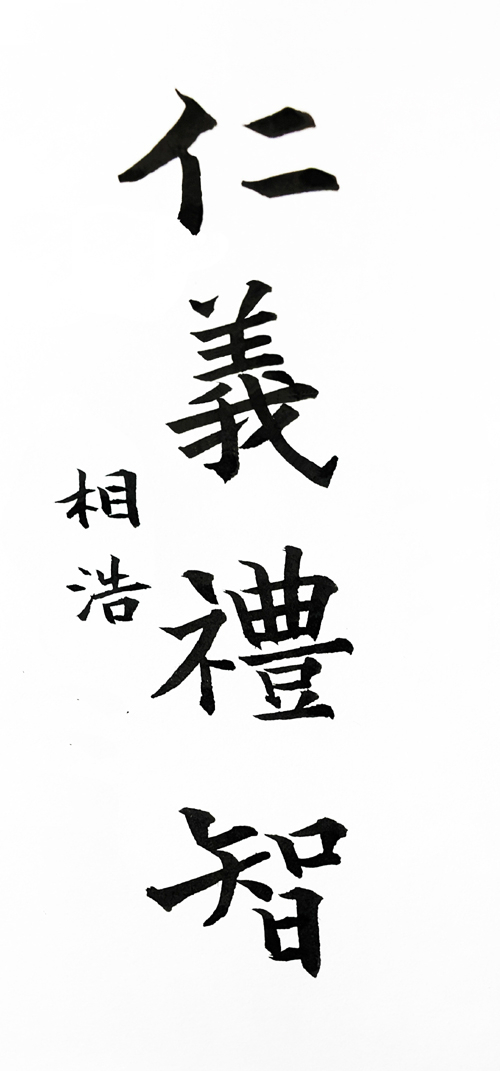 仁義禮智
相浩